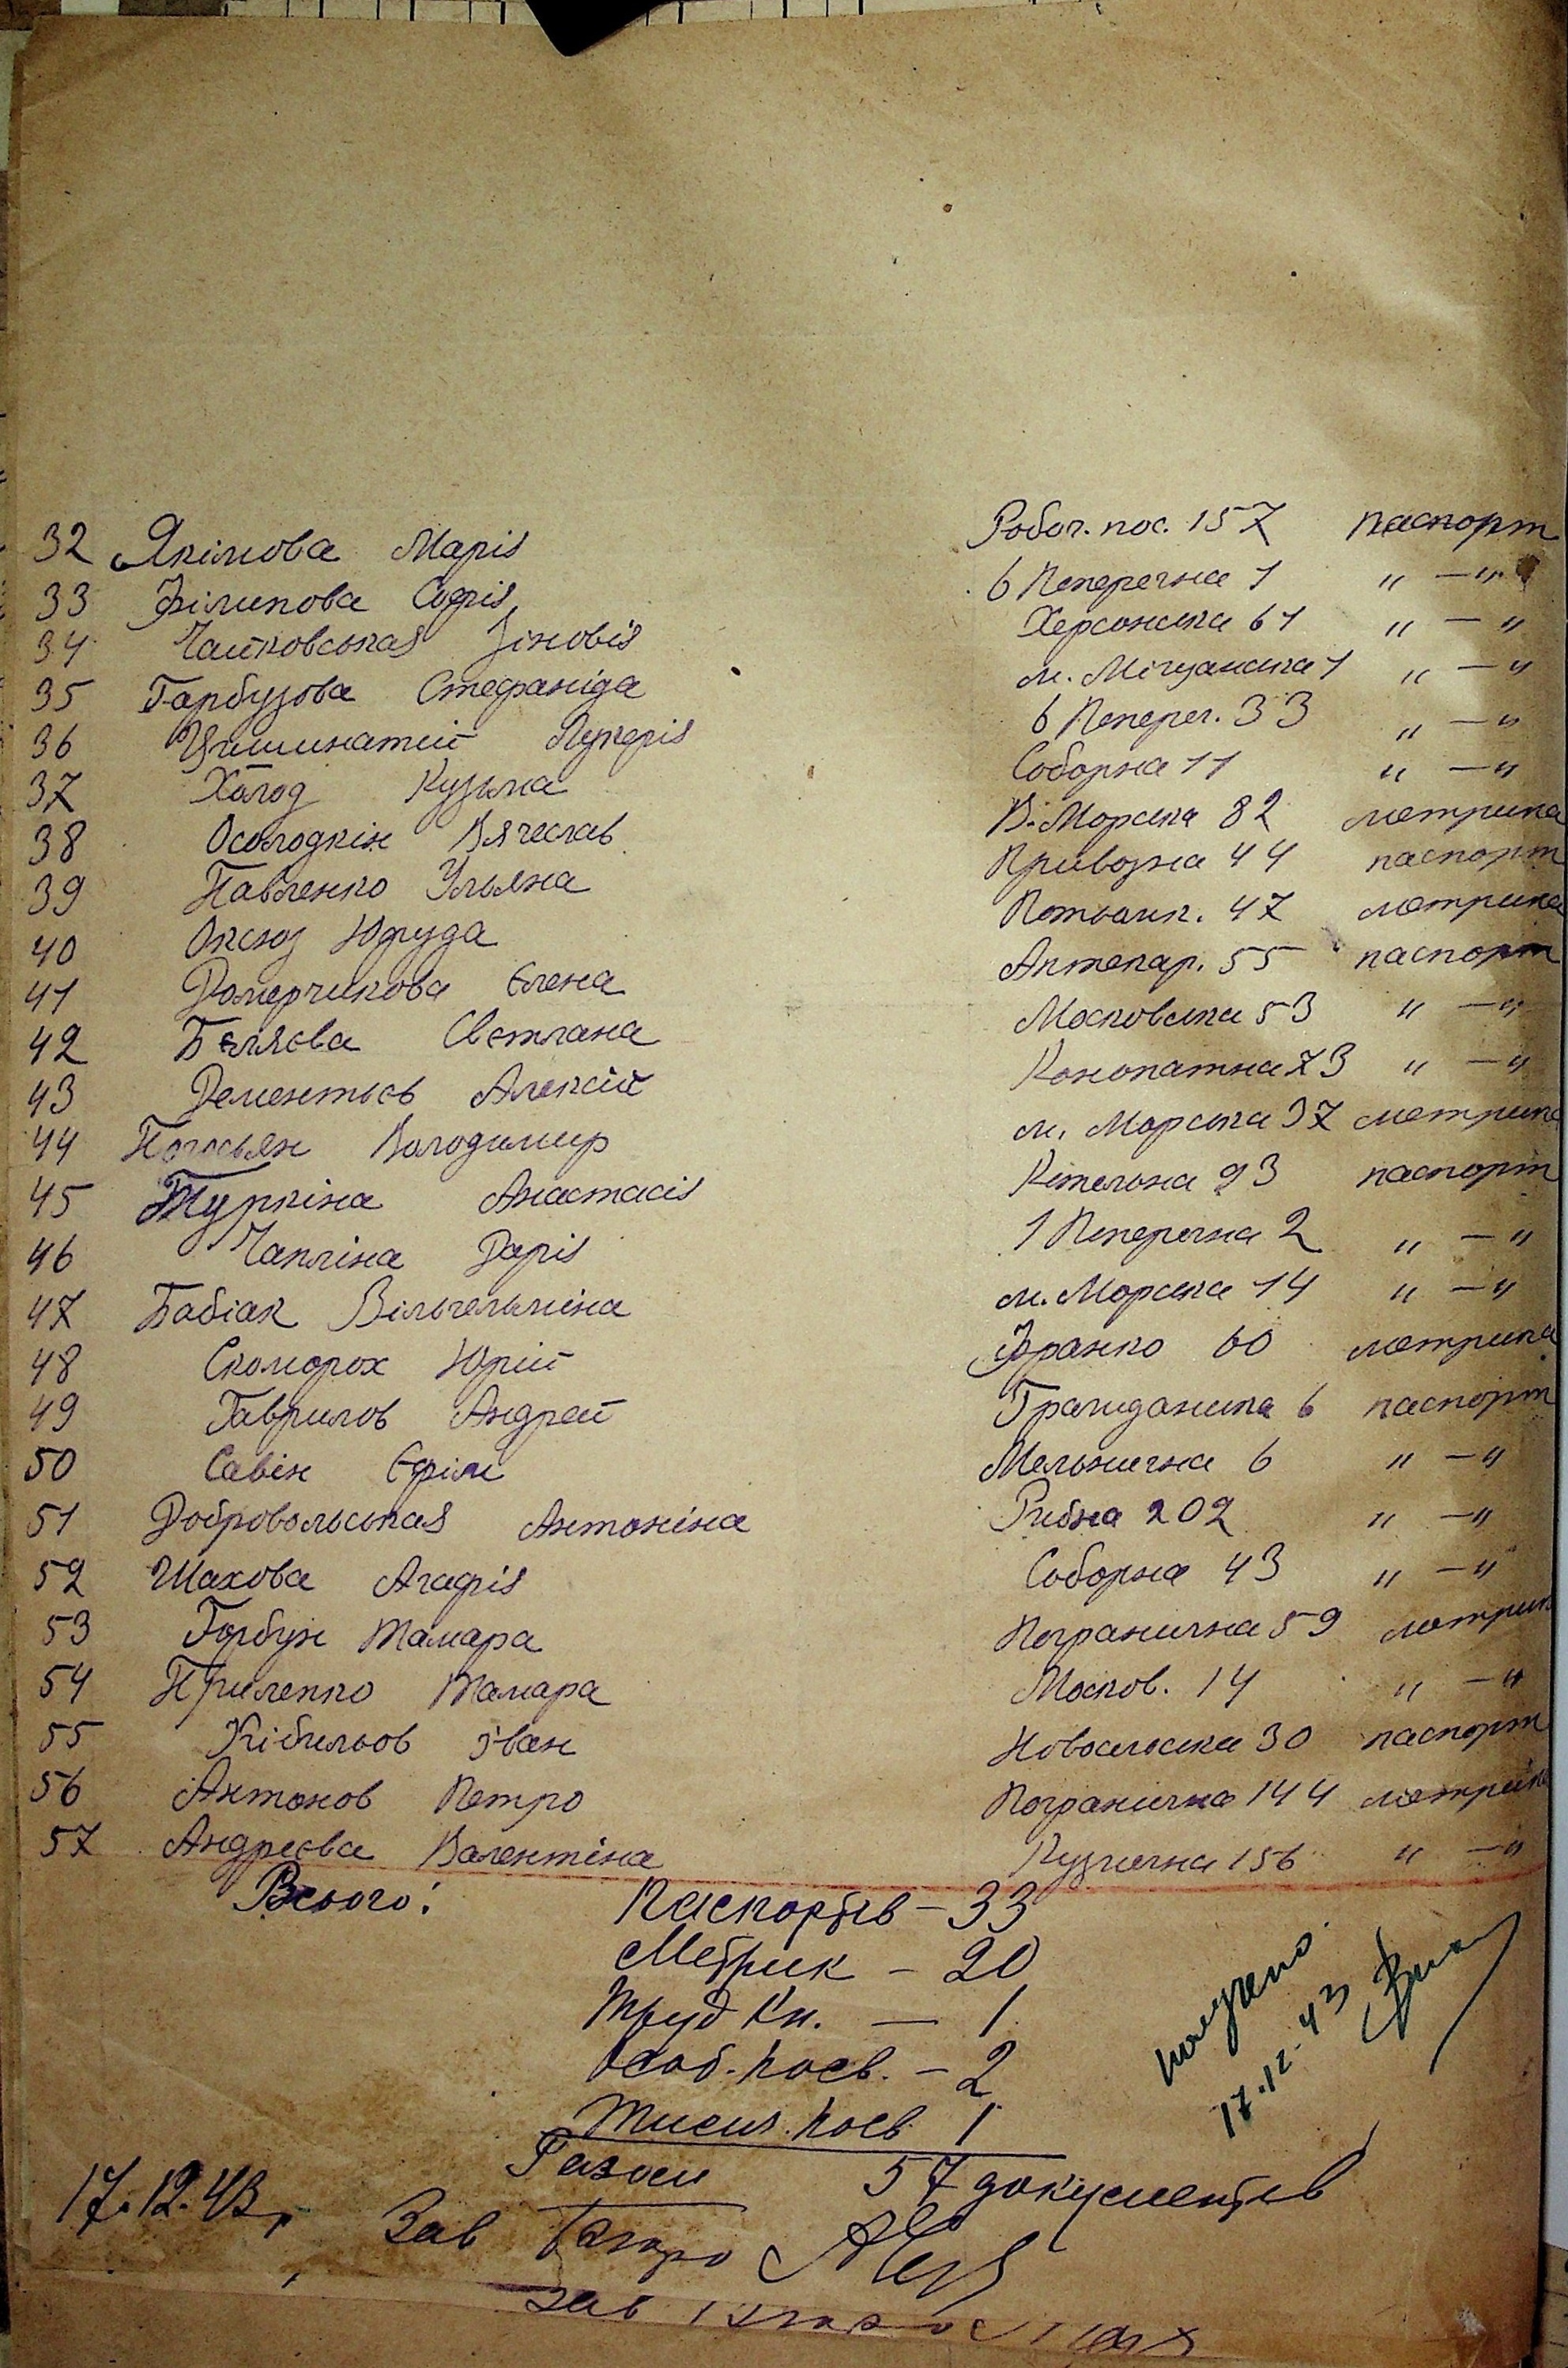 32 Якімова Марія Робоч. пос. 157 паспорт
33 Філипова Софія 6 Поперечна 1 " — "
34 Чайковськая Зіновія Херсонська 61 " — "
35 Гарбузова Стефаніда м. Міщанська 1 " — "
36 Лукерія 6 Попереч. 33 " — "
37 Холод Кузьма Соборна 11 " — "
38 Осолодкін Вячеслав В. Морська 82 метрика
39 Павленко Ульяна Привозна 44 паспорт
40 Оксюз Юфуда Потьомк. 47 метрика
41 Домерчикова Єлена Аптекар. 55 паспорт
42 Бєляєва Свєтлана Московська 53 " — "
43 Дементьєв Алексій Конопатна 73 " — "
44 Погосьян Володимир м. Морська 37 метрика
45 Тупкіна Анастасія Котельна 93 паспорт
46 Чапліна Дарія 1 Поперечна 2 " — "
47 Бабіак Вільгельміна м. Морська 14 " — "
48 Скоморох Юрій Франко 60 метрика
49 Гаврилов Андрей Гражданська 6 паспорт
50 Савін Єфім Мельнична 6 " — "
51 Добровольськая Антоніна Рибна 202 " — "
52 Шахова Агафія Соборна 43 " — "
53 Горбун Тамара Погранична 59 метрик
54 Приленко Тамара Москов. 14 " — "
55 Кібильов Іван Новосельська 30 паспорт
56 Антонов Петро Погранична 144 метрика
57 Андреєва Валентіна Кузнечна 156 " — "
Всього: Паспортів — 33
Метрик — 20
Труд Кн. — 1
Особ. посв. — 2
Тисич. посв 1
получено.
17.12.43
Разом 57 документів
17.12.43 р. Зав Бюро
Зав